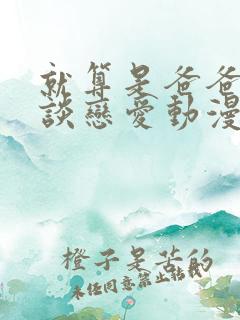 就算是爸爸
談戀愛動漫
橙子是苦的
未任同意禁止転載